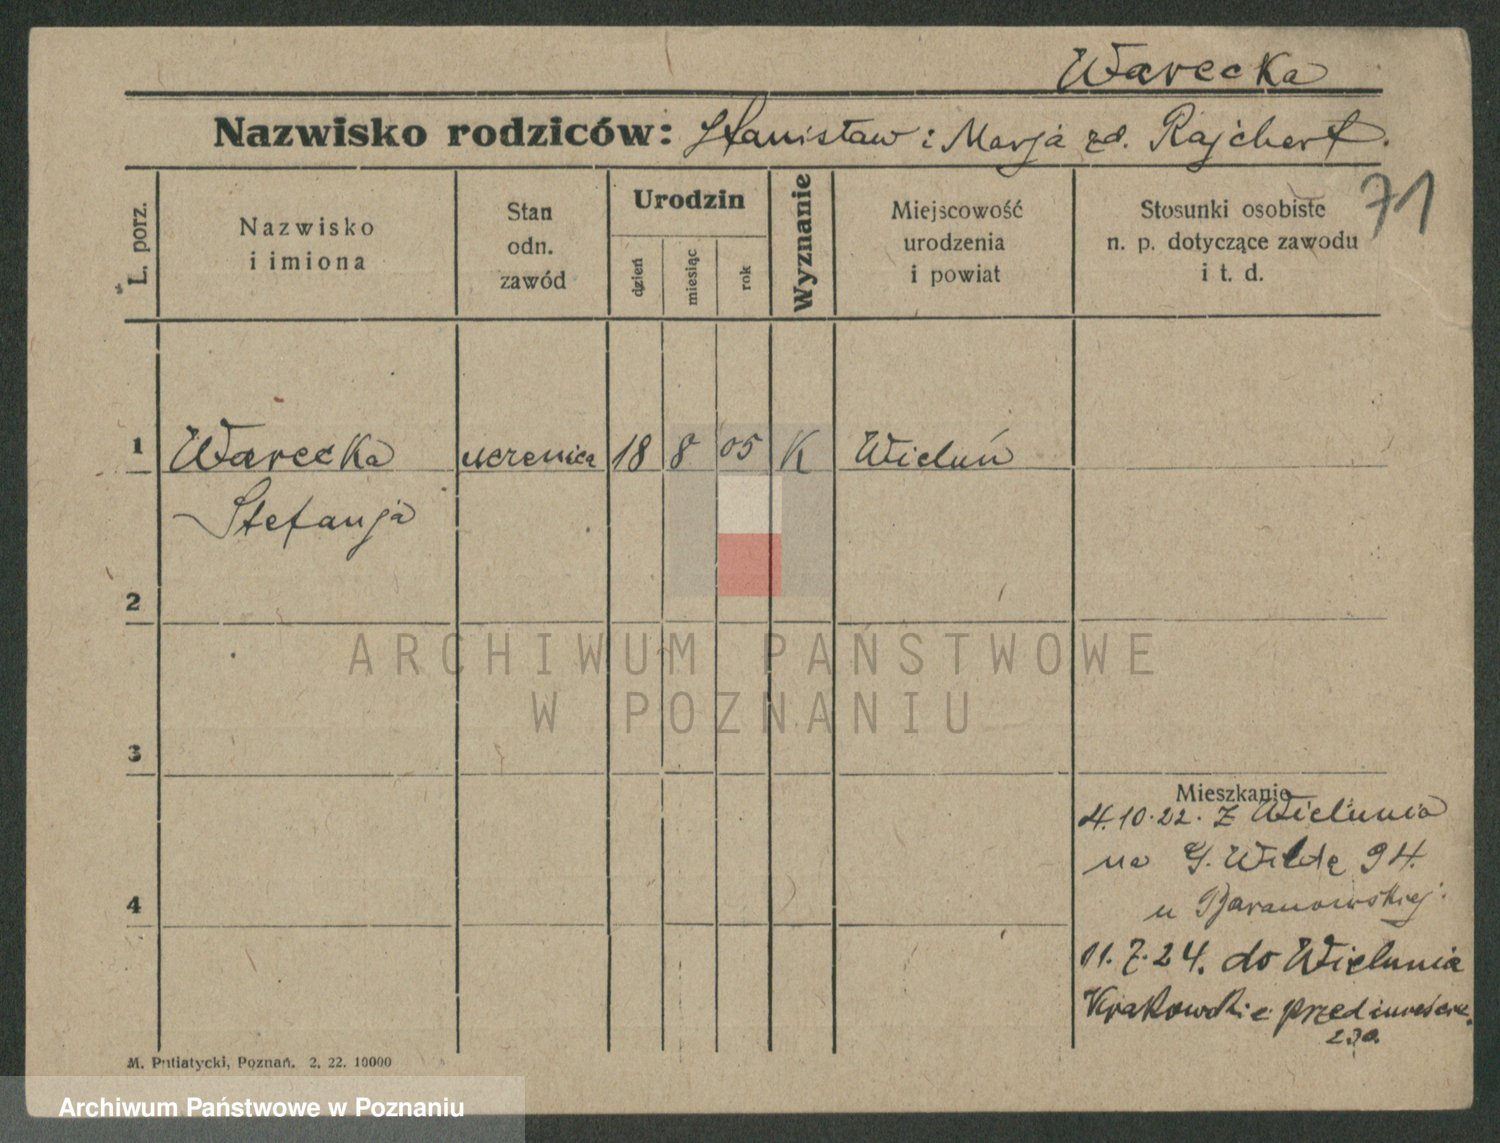 Warecka
Nazwisko rodziców: Stanisław i Marja zd. Rajchert.
71
L. porz.
Nazwisko
i imiona
Stan
odn.
zawód
Urodzin
dzień
miesiąc
rok
Wyznanie
Miejscowość
urodzenia
i powiat
Stosunki osobiste
n. p. dotyczące zawodu
i t. d.
1 Warecka uczenica 18 8 05 K Wieluń
Stefanja
2
ARCHIWUM PAŃSTWOWE
W POZNANIU
3
Mieszkanie
4.10.22. z Wielunia
na G. Wildę 94.
u Baranowskiej.
4
11.7.24. do Wielunia
Krakowskie przedmieście
M. Putiatycki, Poznań. 2. 22. 10000
Archiwum Państwowe w Poznaniu